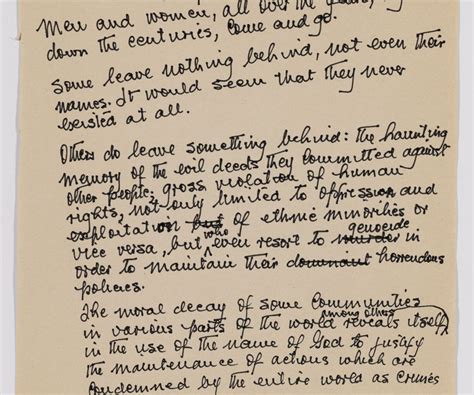 Men and women, all over the world,
down the centuries, come and go.
Some leave nothing behind, not even their
names. It would seem that they never
existed at all.
Others do leave something behind: the haunting
memory of the evil deeds they committed against
other people; gross violation of human
rights, not only limited to oppression and
exploitation but of ethnic minorities or
vice versa, but who even resort to murder genocide in
order to maintain their dominant horrendous
policies.
The moral decay of some communities
in various parts of the world reveals itself among others
in the use of the name of God to justify
the maintenance of actions which are
condemned by the entire world as crimes